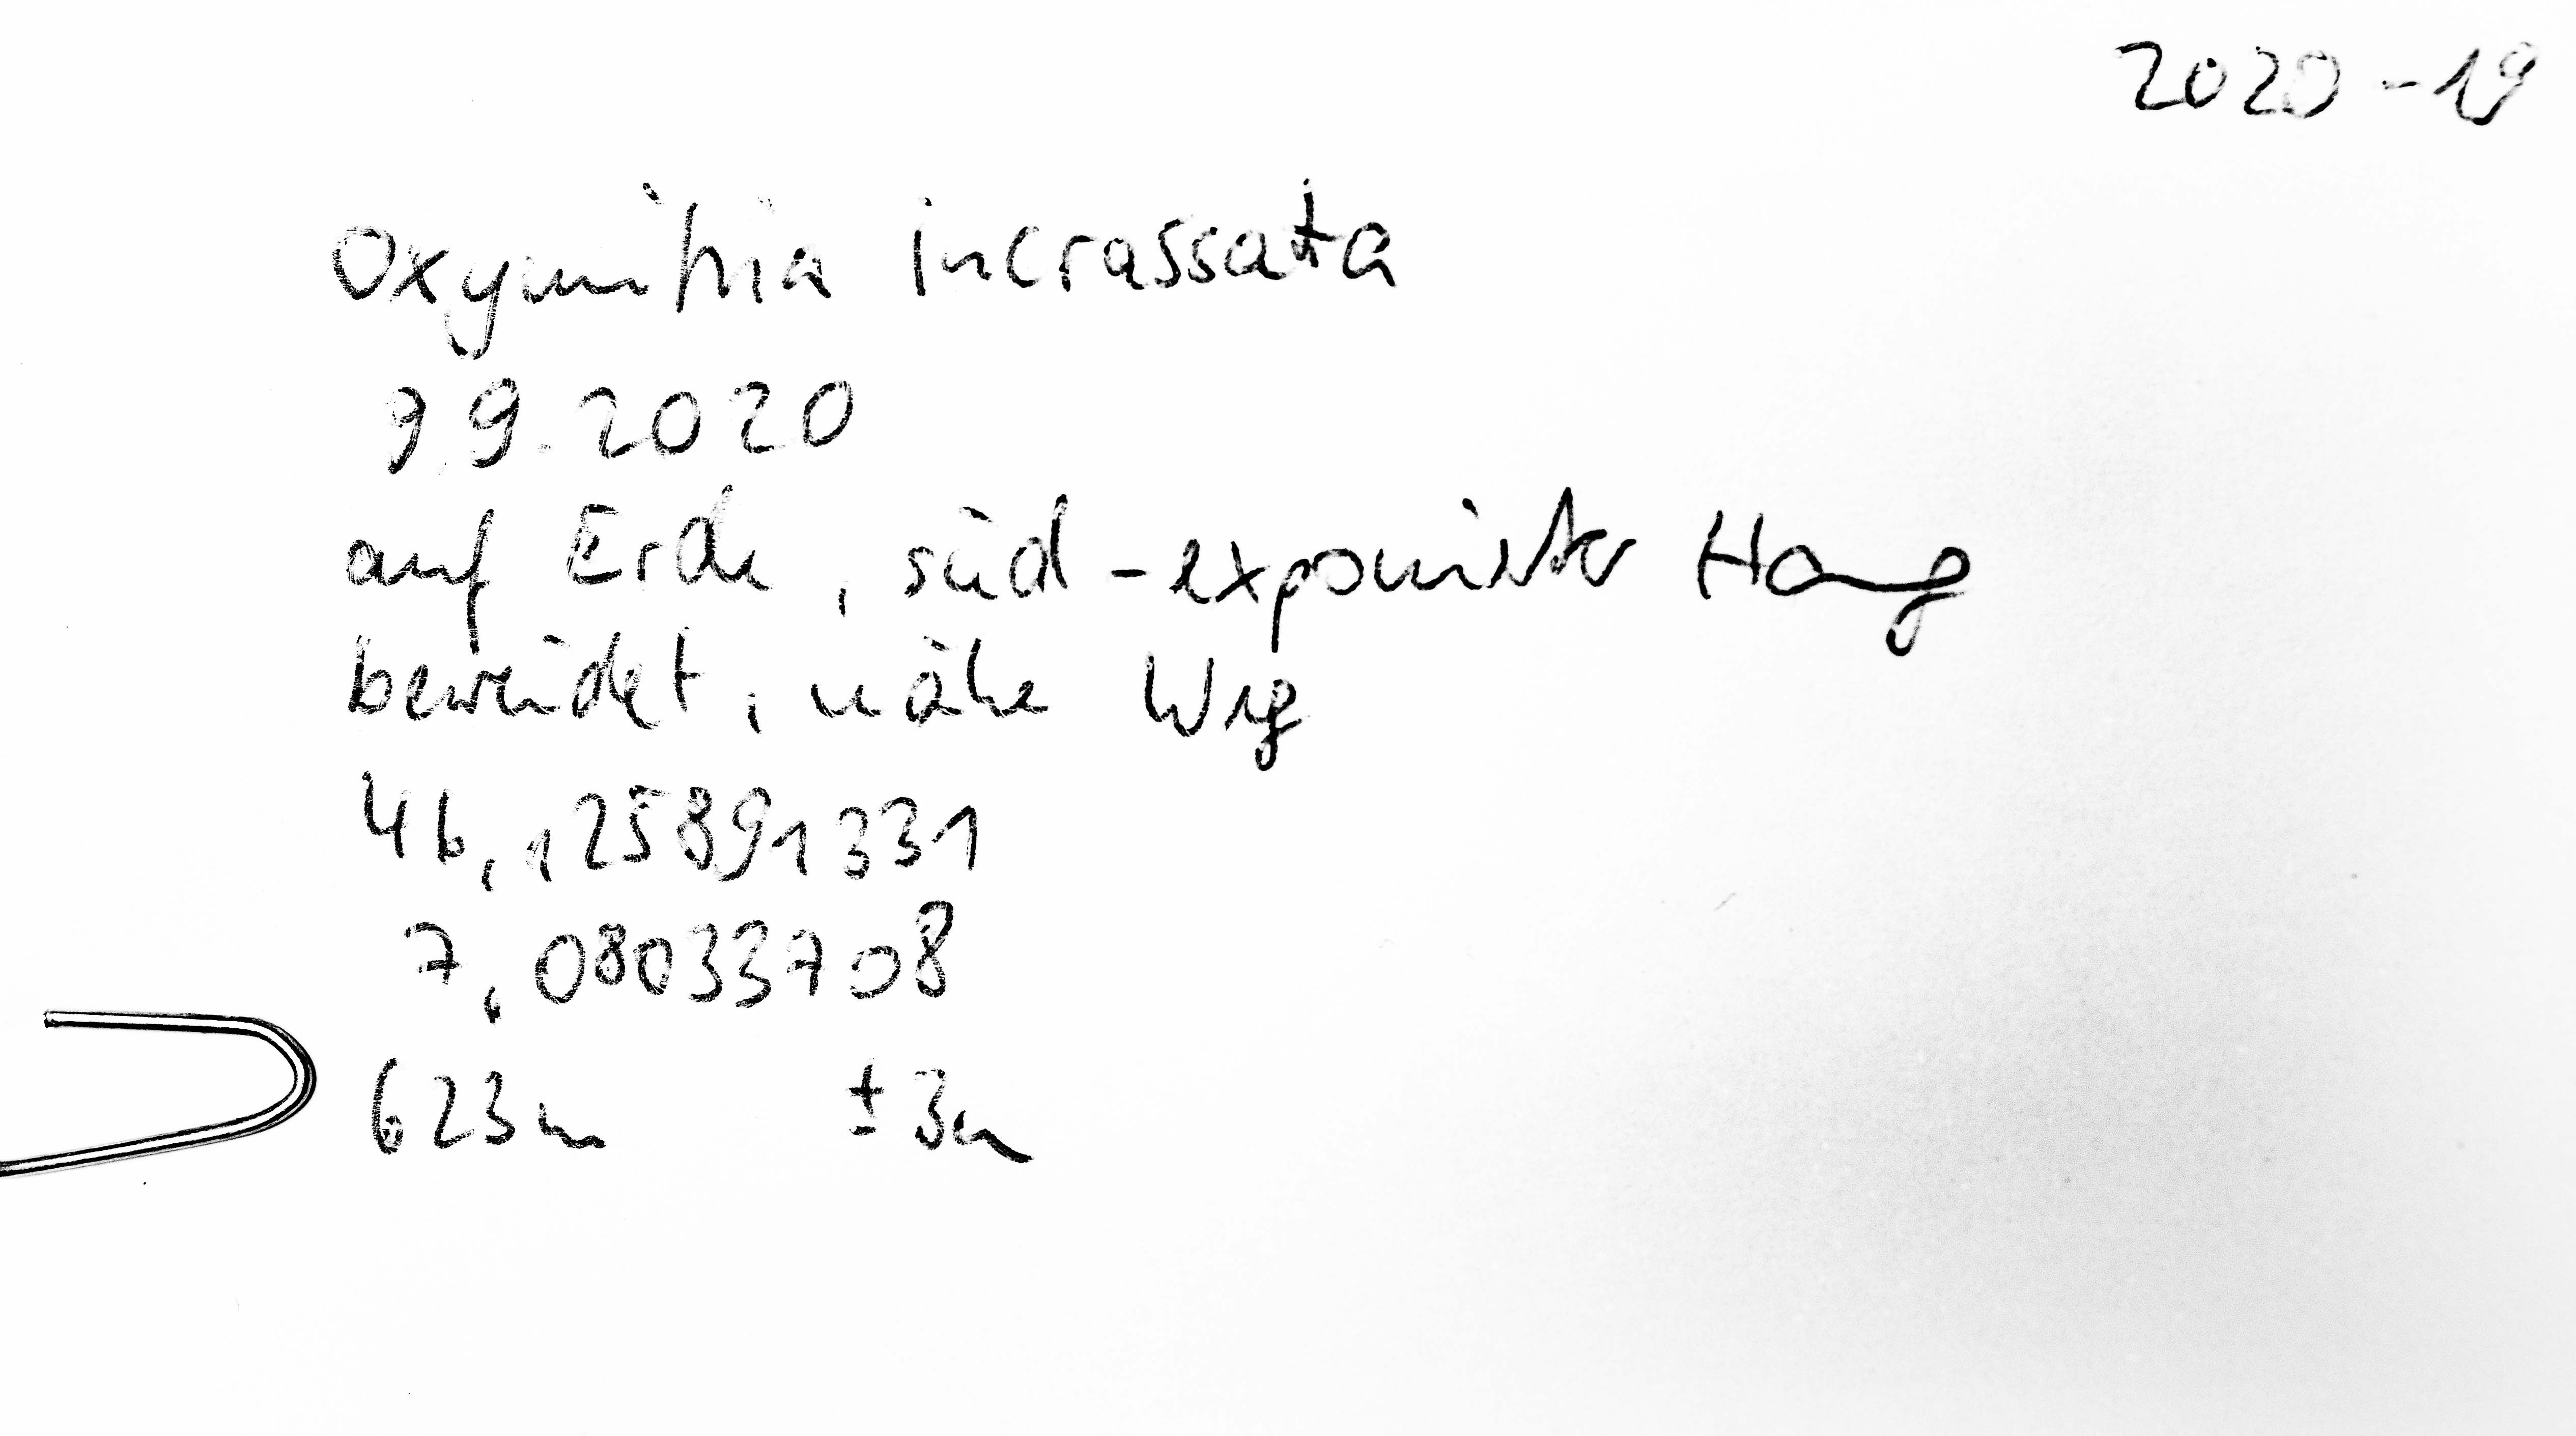 2020-19
Oxymitria incrassata
9.9.2020
auf Erde, süd-exponierter Hang
beweidet, nähe Weg
46,125891331
7,08033708
623m ±3m